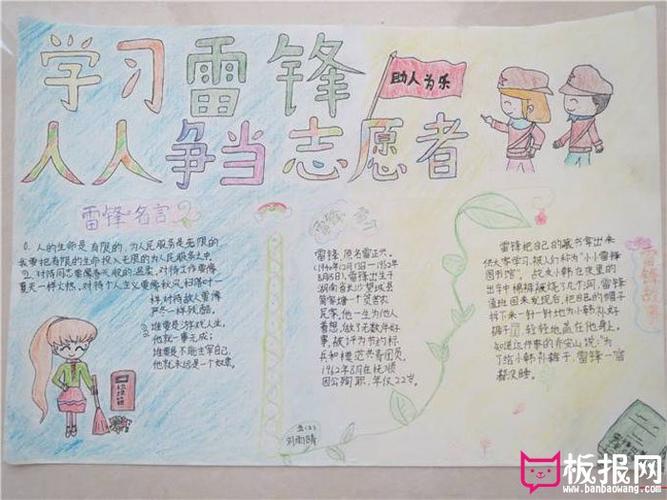 学习雷锋
助人为乐
人人争当志愿者
雷锋名言
①. 人的生命是有限的, 为人民服务是无限的
我要把有限的生命投入无限的为人民服务之中.
②. 对待同志要像春天般的温柔, 对待工作要像
夏天一样火热, 对待个人主义要像秋风扫落叶一
样. 对待敌人要像
严冬一样残酷.
③ 谁要是游戏人生,
他就一事无成;
谁要是不能主宰自己,
他就永远是一个奴隶.
雷锋
雷锋 原名雷正兴.
(1940年12月18日—1962年
8月15日), 雷锋出生于
湖南省长沙望城县
简家塘一个贫苦农
民家, 他一生为他人
着想, 做了无数件好
事, 被评为节约标
兵和模范共青团员,
1962年8月在抚顺
因公殉职, 年仅22岁.
五(2)
刘雨晴
雷锋故事
雷锋把自己的藏书拿出来
供大家学习, 被人们称为“小小雷锋
图书馆”. 战友小韩在夜里的
出车中棉裤被烧了几个洞, 雷锋
值班回来发现后, 把自己的帽子
拆下来一针一针地为小韩补好
裤子, 轻轻地盖在他身上.
知道这件事的乔安山说: 为
了给小韩补裤子, 雷锋一宿
都没睡.
板报网
www.banbaowang.com